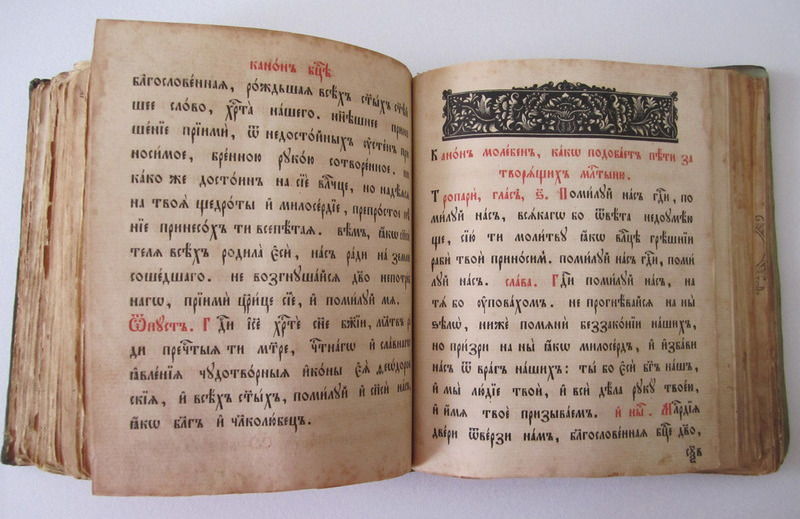 кано́нъ бц҃ѣ
блгⷭ҇ове́нная, ро́ждьшая всѣ́хъ ст҃ы́хъ
шее сло́во, хрⷭ҇та̀ на́шего. нн҃ѣшнее
ше́нїе прїимѝ, ѿ недосто́йныхъ ᲂу҆сте́нъ
носи́мое, бре́нною рꙋко́ю сотворе́нное.
ка́ко же досто́ин на сїѐ влⷣчце, но надѣ́емсѧ
на твоѧ̀ щедро́ты и҆ милосе́рдїе, препросто́е
нїе принесо́хъ ти всепѣ́таѧ. вѣ́мъ, ꙗ҆́кѡ
телѧ всѣ́хъ родила̀ є҆сѝ, на́съ ра́ди на зе́млю
соше́дшаго. не возгнꙋша́йсѧ дв҃о
наго, прїимѝ цр҃и́це сїѐ, и҆ поми́лꙋй мѧ̀.
Ѿпꙋстъ. Гдⷭ҇и і҆с҃е хрⷭ҇тѐ сн҃е бж҃їи, мл҃твъ
ди пречⷭ҇тыѧ ти мт҃ре, чтⷭ҇на́гѡ и҆ сла́внагѡ
ꙗ҆вле́нїѧ чꙋдотво́рныѧ и҆ко́ны є҆ѧ̀ ѳеѻ́доро
скїѧ, и҆ всѣ́хъ ст҃ы́хъ, поми́лꙋй и҆ сп҃сѝ на́съ
ꙗ҆́кѡ бл҃гъ и҆ чл҃колю́бецъ.
Кано́нъ моле́бенъ, ка́кѡ подоба́етъ пѣ́ти за
творѧ́щихъ млⷭ҇тыню.
Тропарѝ, гла́съ, ѕ҃. Поми́лꙋй на́съ гдⷭ҇и, по
ми́лꙋй на́съ, всѧ́кагѡ бо ѿвѣ́та недоꙋмѣ́ю
ще, сїю́ ти моли́твꙋ ꙗ҆́кѡ влⷣцѣ грѣ́шнїи
рабѝ твоѝ прино́симъ. поми́лꙋй на́съ гдⷭ҇и, поми
лꙋй на́съ. сла́ва. Гдⷭ҇и поми́лꙋй на́съ, на
тѧ̀ бо ᲂу҆пова́хомъ. не прогнѣ́вайсѧ на ны̀
ѕѣлѡ̀, нижѐ помѧнѝ беззако́нїи на́шихъ,
но при́зри на ны̀ ꙗ҆́кѡ милосе́рдъ, и҆ и҆зба́ви
на́съ ѿ вра́гъ на́шихъ: ты́ бо є҆сѝ бг҃ъ на́шъ,
и҆ мы̀ лю́дїе твоѝ, и҆ всѝ дѣ́ла рꙋкꙋ̀ твоє́ю,
и҆ и҆́мѧ твоѐ призыва́емъ. и҆ нн҃ѣ. Млⷭ҇рдїѧ
две́ри ѿве́рзи на́мъ, блгⷭ҇ове́ннаѧ бц҃е дв҃о,